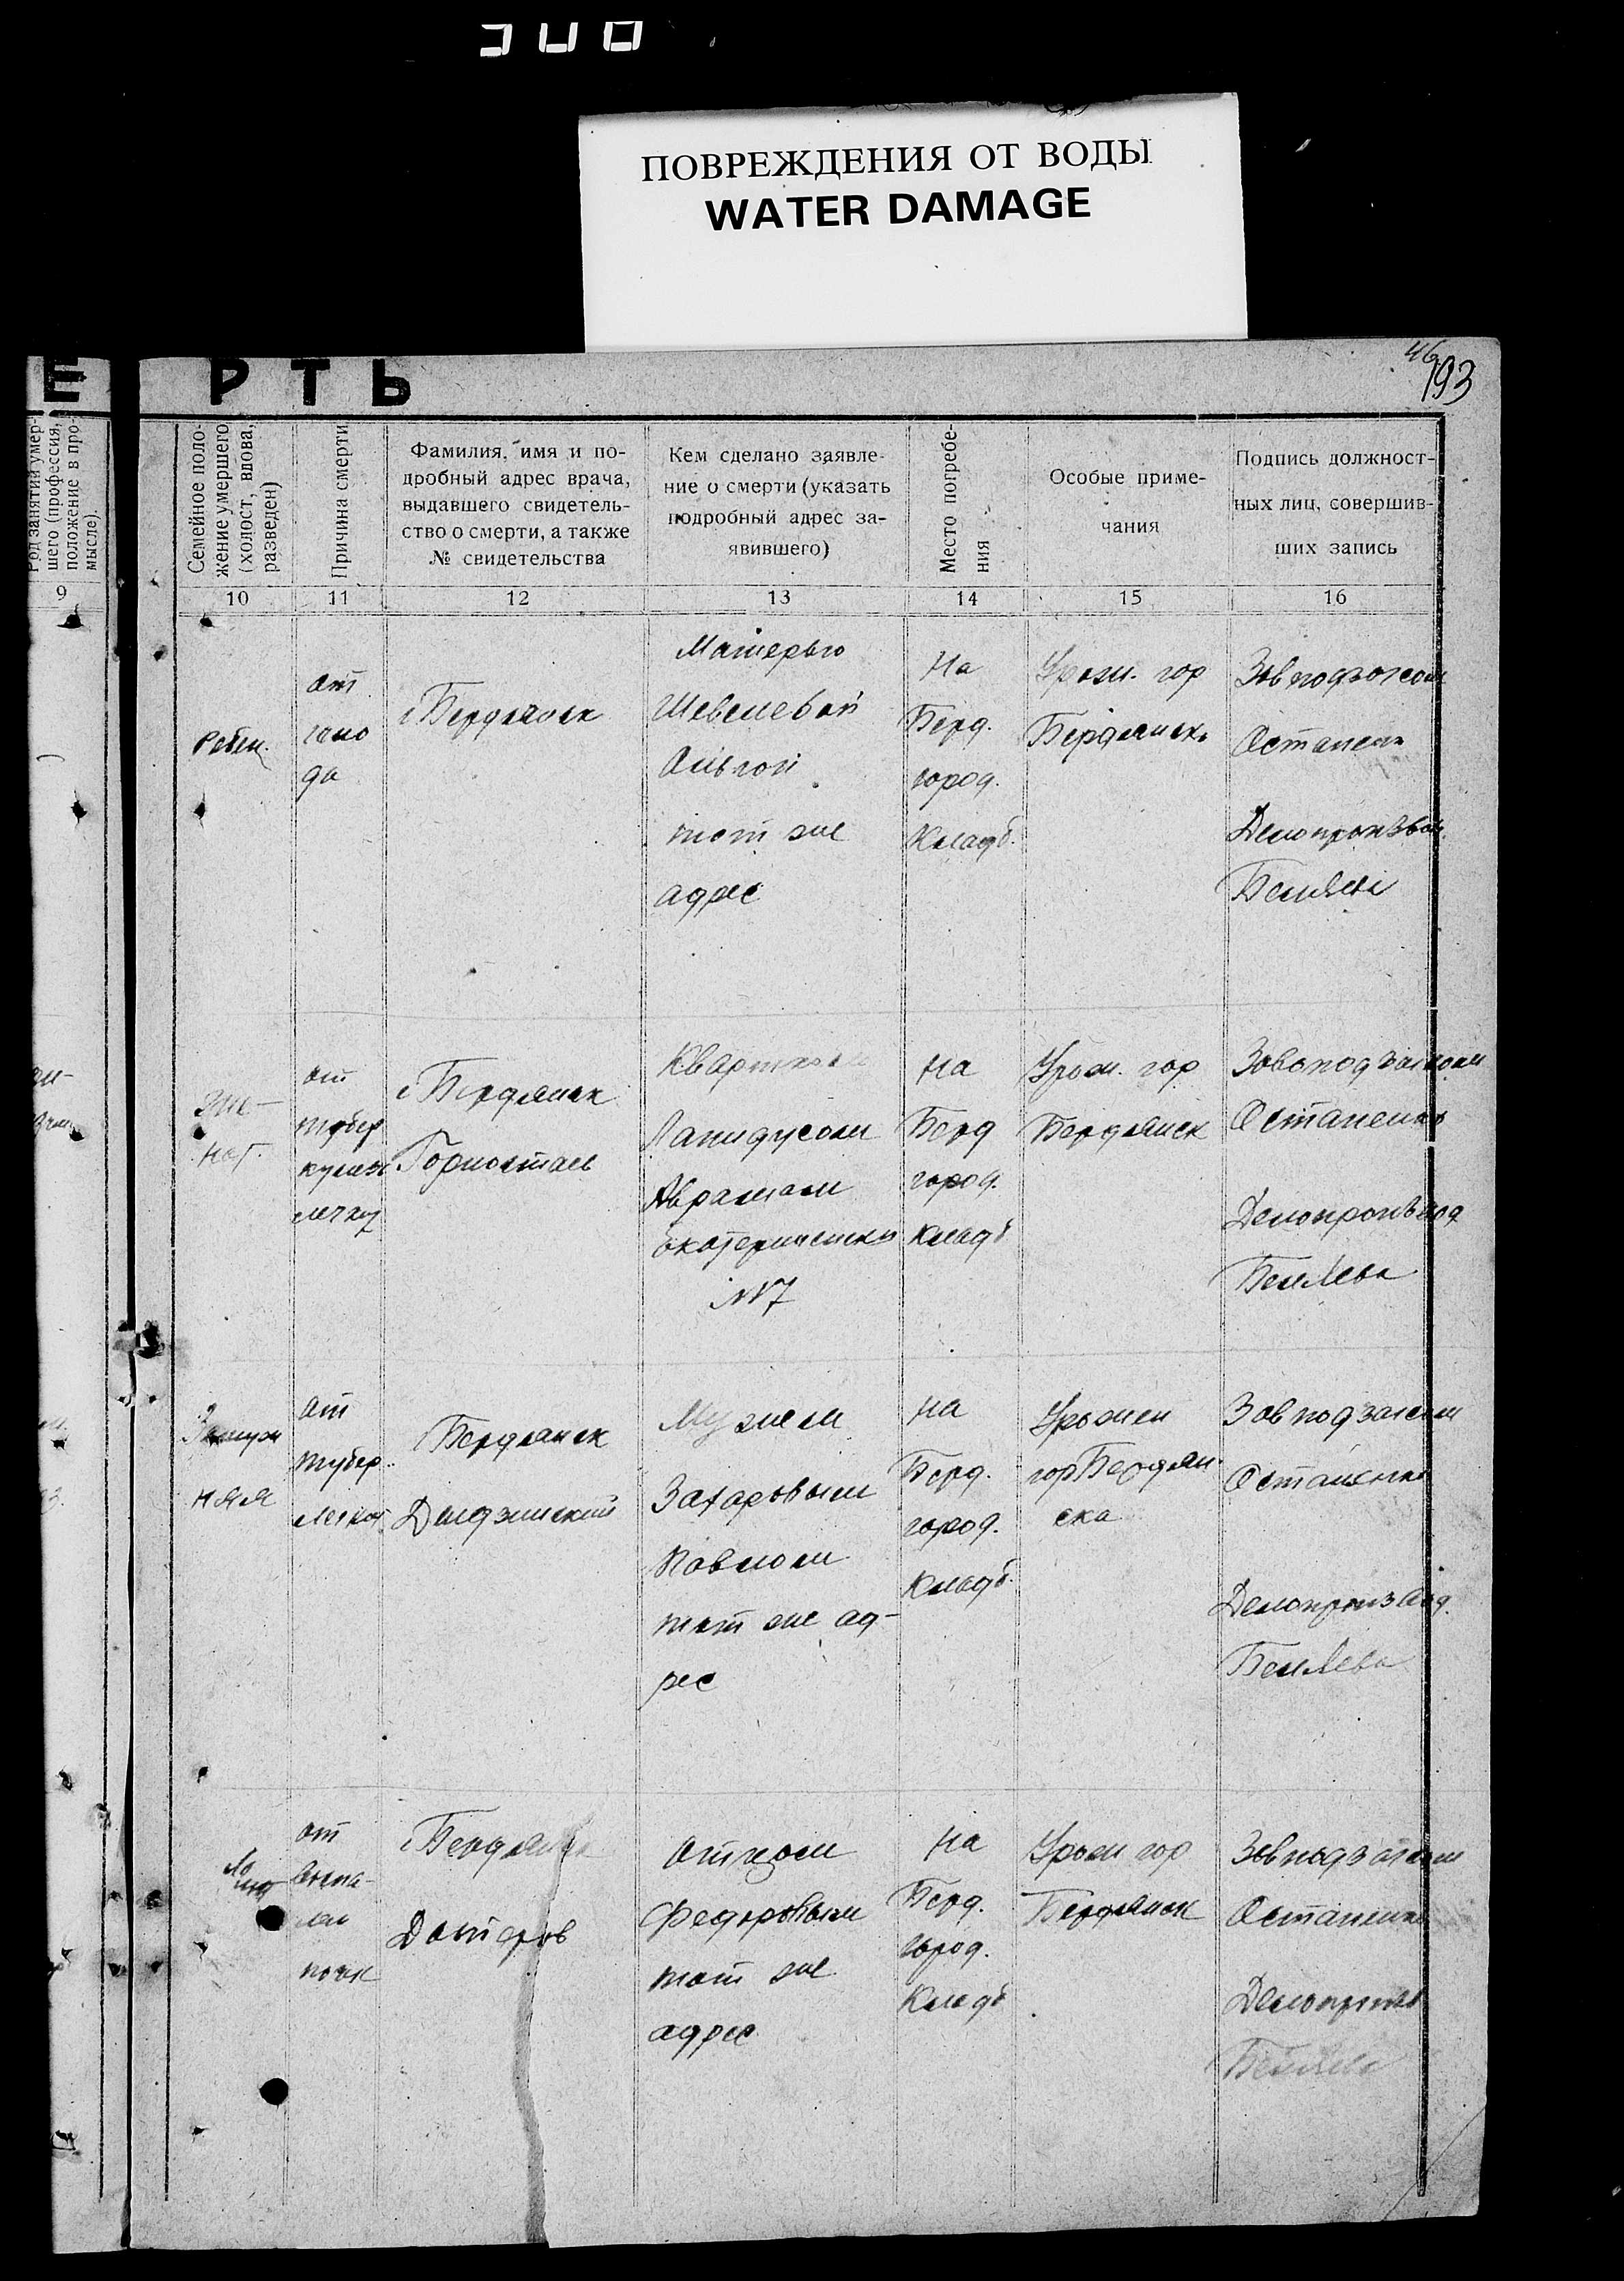 ПОВРЕЖДЕНИЯ ОТ ВОДЫ
WATER DAMAGE
46
193
Е Р Т Ь
Род занятий умер-
шего (профессия,
положение в про-
мысле).
Семейное поло-
жение умершего
(холост, вдова,
разведен)
Причина смерти
Фамилия, имя и по-
дробный адрес врача,
выдавшего свидетель-
ство о смерти, а также
№ свидетельства
Кем сделано заявле-
ние о смерти (указать
подробный адрес за-
явившего)
Место погребе-
ния
Особые приме-
чания
Подпись должност-
ных лиц, совершив-
ших запись
9 10 11 12 13 14 15 16
от
г Бердянск
Матерью
Шевелевой
Ольгой
тот же
адрес
На
Берд.
город.
Кладб.
Урож. гор
Бердянск
Остапенк
Делопроизвод
Беляева
от
тубер
г Бердянск
Горностаев
Лапидусом
Абрамом
№7
на
Берд
город.
кладб
Урож. гор
Бердянск
Остапенко
Делопроизвод
Беляева
от
тубер.
Бердянск
Мужем
Захаровым
Павлом
тот же ад-
рес
на
Берд.
город.
кладб.
Урожен
гор Бердян
ска
Остапенко
Делопроизвод.
Беляева
от
воспа-
лен
почек
г Бердянск
Отцом
Федоровым
тот же
адрес
На
Берд.
город.
Кладб
Урож гор
Бердянск
Остапенко
Делопроизв
Беляева